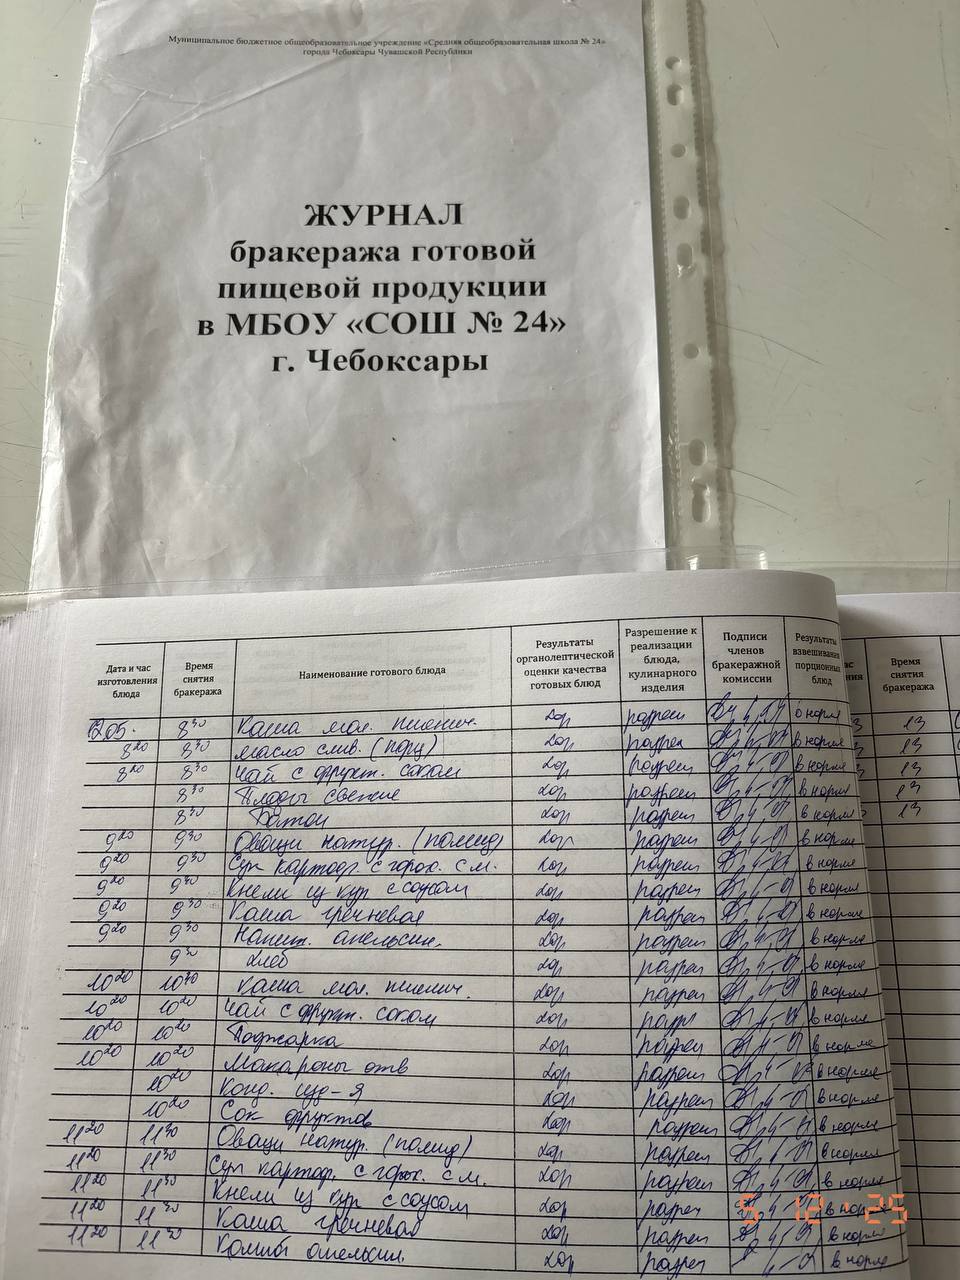 Муниципальное бюджетное общеобразовательное учреждение «Средняя общеобразовательная школа № 24»
города Чебоксары Чувашской Республики
ЖУРНАЛ
бракеража готовой
пищевой продукции
в МБОУ «СОШ № 24»
г. Чебоксары
Дата и час изготовления блюда Время снятия бракеража Наименование готового блюда Результаты органолептической оценки качества готовых блюд Разрешение к реализации блюда, кулинарного изделия Подписи членов бракеражной комиссии Результаты взвешивания порционных блюд Время снятия бракеража
8 30 Каша мол. пшенич. хор разреш в норме 13
8 20 8 30 масло слив. (порц) хор разреш в норме 13
8 20 8 30 Чай с фрукт. соком хор разреш в норме 13
8 30 Плоды свежие хор разреш в норме 13
8 30 Батон хор разреш в норме 13
9 20 9 30 Овощи натур. (помид) хор разреш в норме
9 20 9 30 Суп картоф. с горох. с м. хор разреш в норме
9 20 9 30 Кнели из кур с соусом хор разреш в норме
9 20 9 30 Каша гречневая хор разреш в норме
9 20 9 30 Напит. апельсин. хор разреш в норме
9 30 Хлеб хор разреш в норме
10 20 Каша мол. пшенич. хор разреш в норме
10 20 10 20 Чай с фрукт. соком хор разр в норме
10 20 10 20 Поджарка хор разреш в норме
10 20 10 20 Макароны отв хор разреш в норме
10 20 Конд. изд-я хор разреш в норме
10 20 Сок фруктов хор разреш в норме
11 20 11 30 Овощи натур. (помид) хор разреш в норме
11 20 11 30 Суп картоф. с горох. с м. хор разреш в норме
11 20 11 30 Кнели из кур с соусом хор разреш в норме
11 20 11 30 Каша гречневая хор разреш в норме
11 20 11 30 хор разреш в норме
5 12 '25